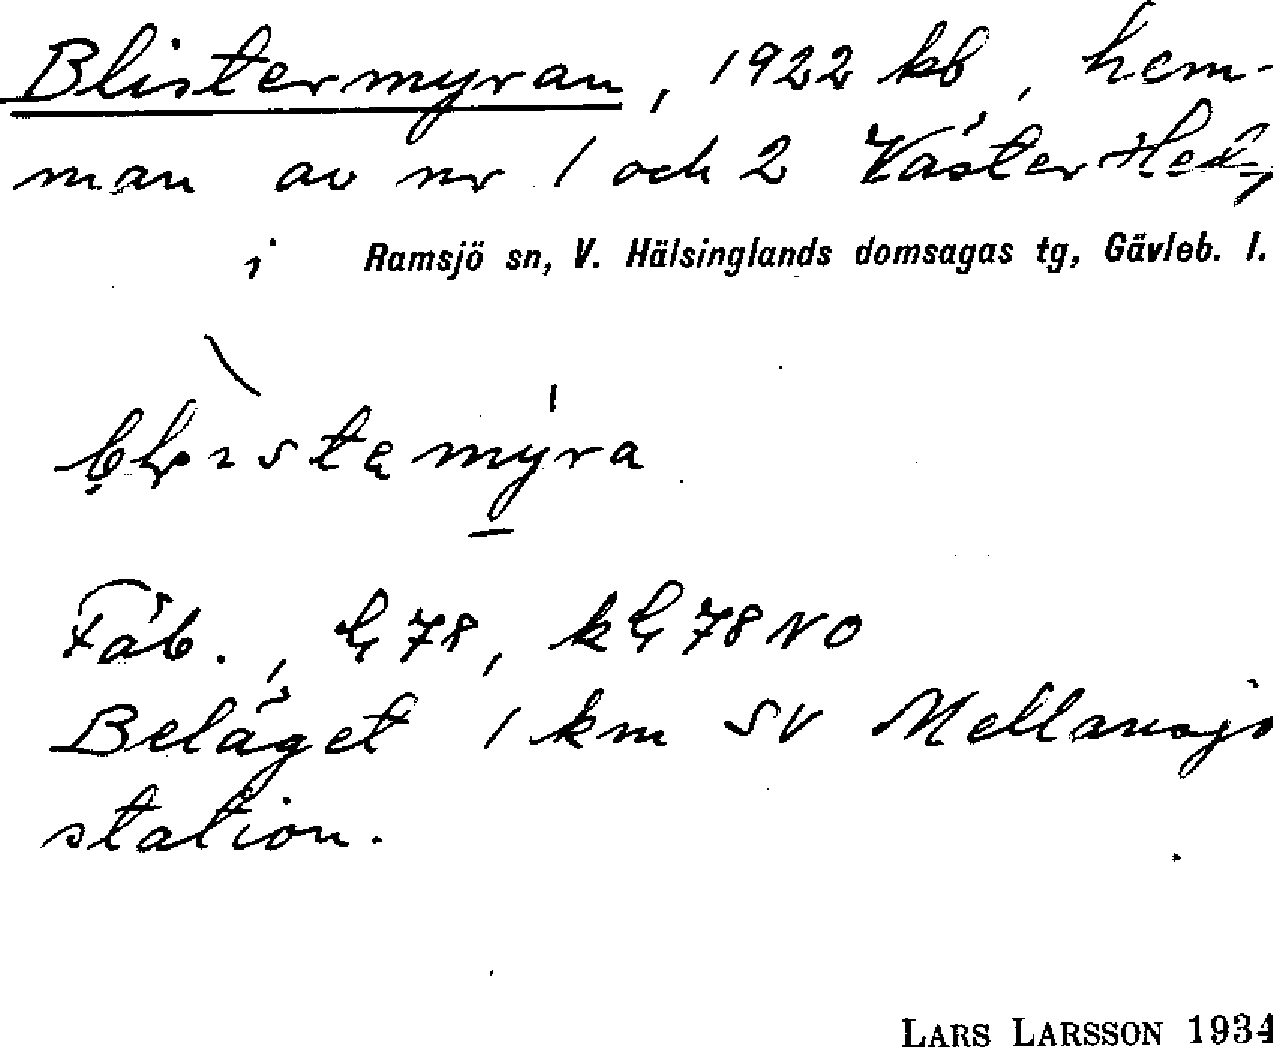 Blistermyran, 1922 kb, hem-
man av nr 1 och 2 Väster Hed,
i Ramsjö sn, V. Hälsinglands domsagas tg, Gävleb. l.
Fäb., G 78, kG 78 NO
Beläget 1 km SV Mellansjö
station.
LARS LARSSON 1934